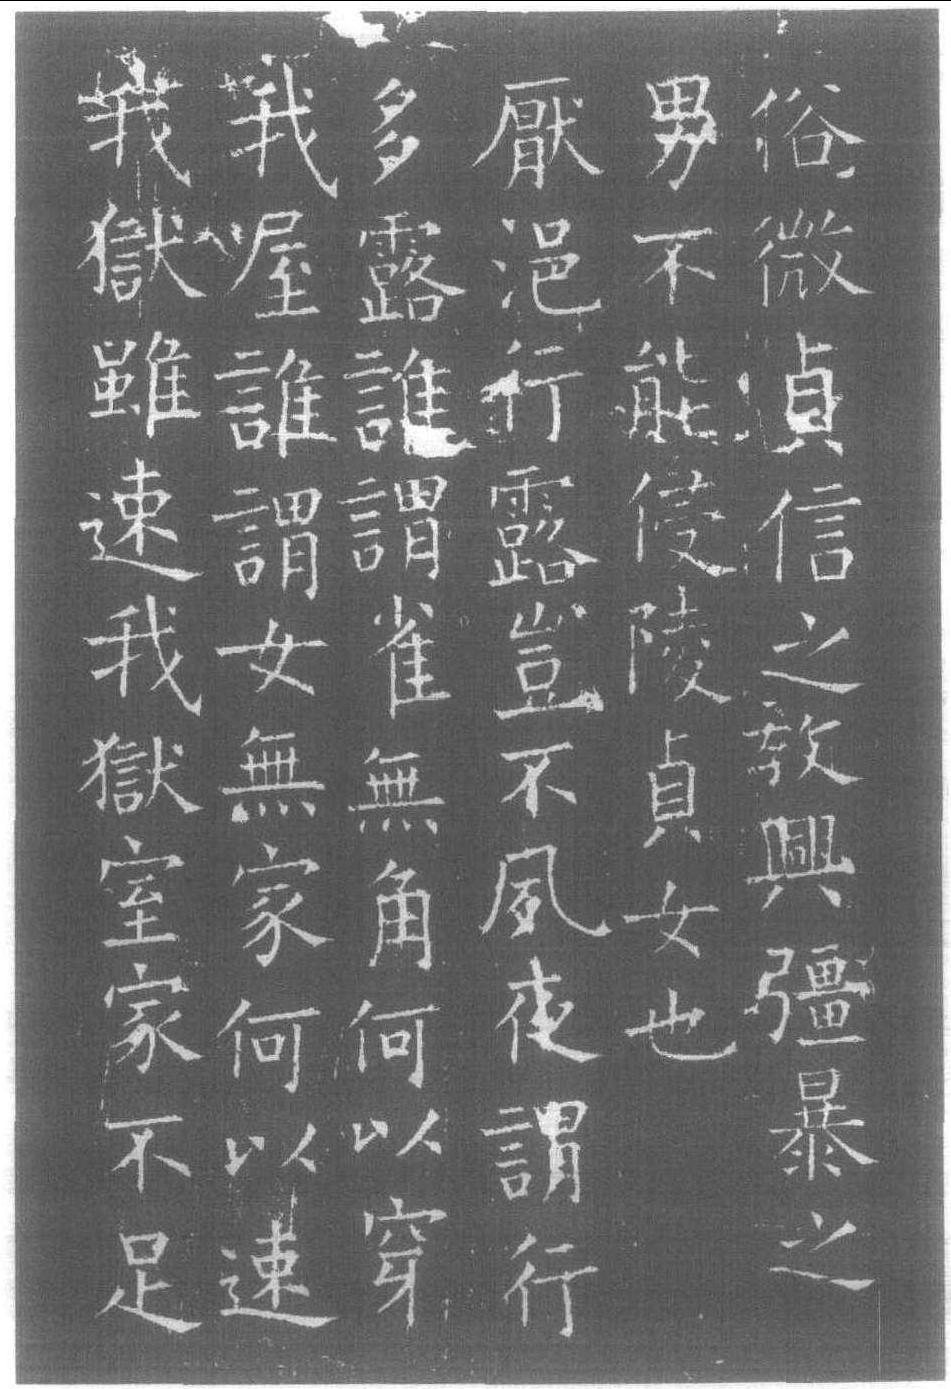 俗微貞信之教興彊暴之
男不能侵陵貞女也
厭浥行露豈不夙夜謂行
多露誰謂雀無角何以穿
我屋誰謂女無家何以速
我獄雖速我獄室家不足